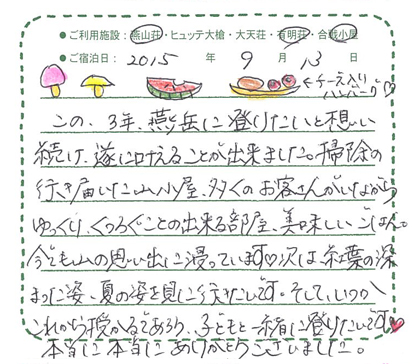 ●ご利用施設：燕山荘・ヒュッテ大槍・大天荘・有明荘・合戦小屋
●ご宿泊日：2015年 9月 13日
←チーズ入りハンバーグ♡
この、3年、燕岳に登りたいと想い
続け、遂に叶えることが出来ました。掃除の
行き届いた山小屋、多くのお客さんがいながら
ゆっくり、くつろぐことの出来る部屋、美味しいごはん。
今でも山の思い出に浸っています♡次は紅葉の深
まった姿、夏の姿を見に行きたいです。そして、いつか
これから授かるであろう、子どもと一緒に登りたいです♥
本当に本当にありがとうございました。